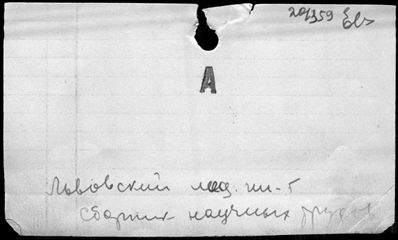 20/359
А
Львовский мед. ин-т
Сборник научных трудов